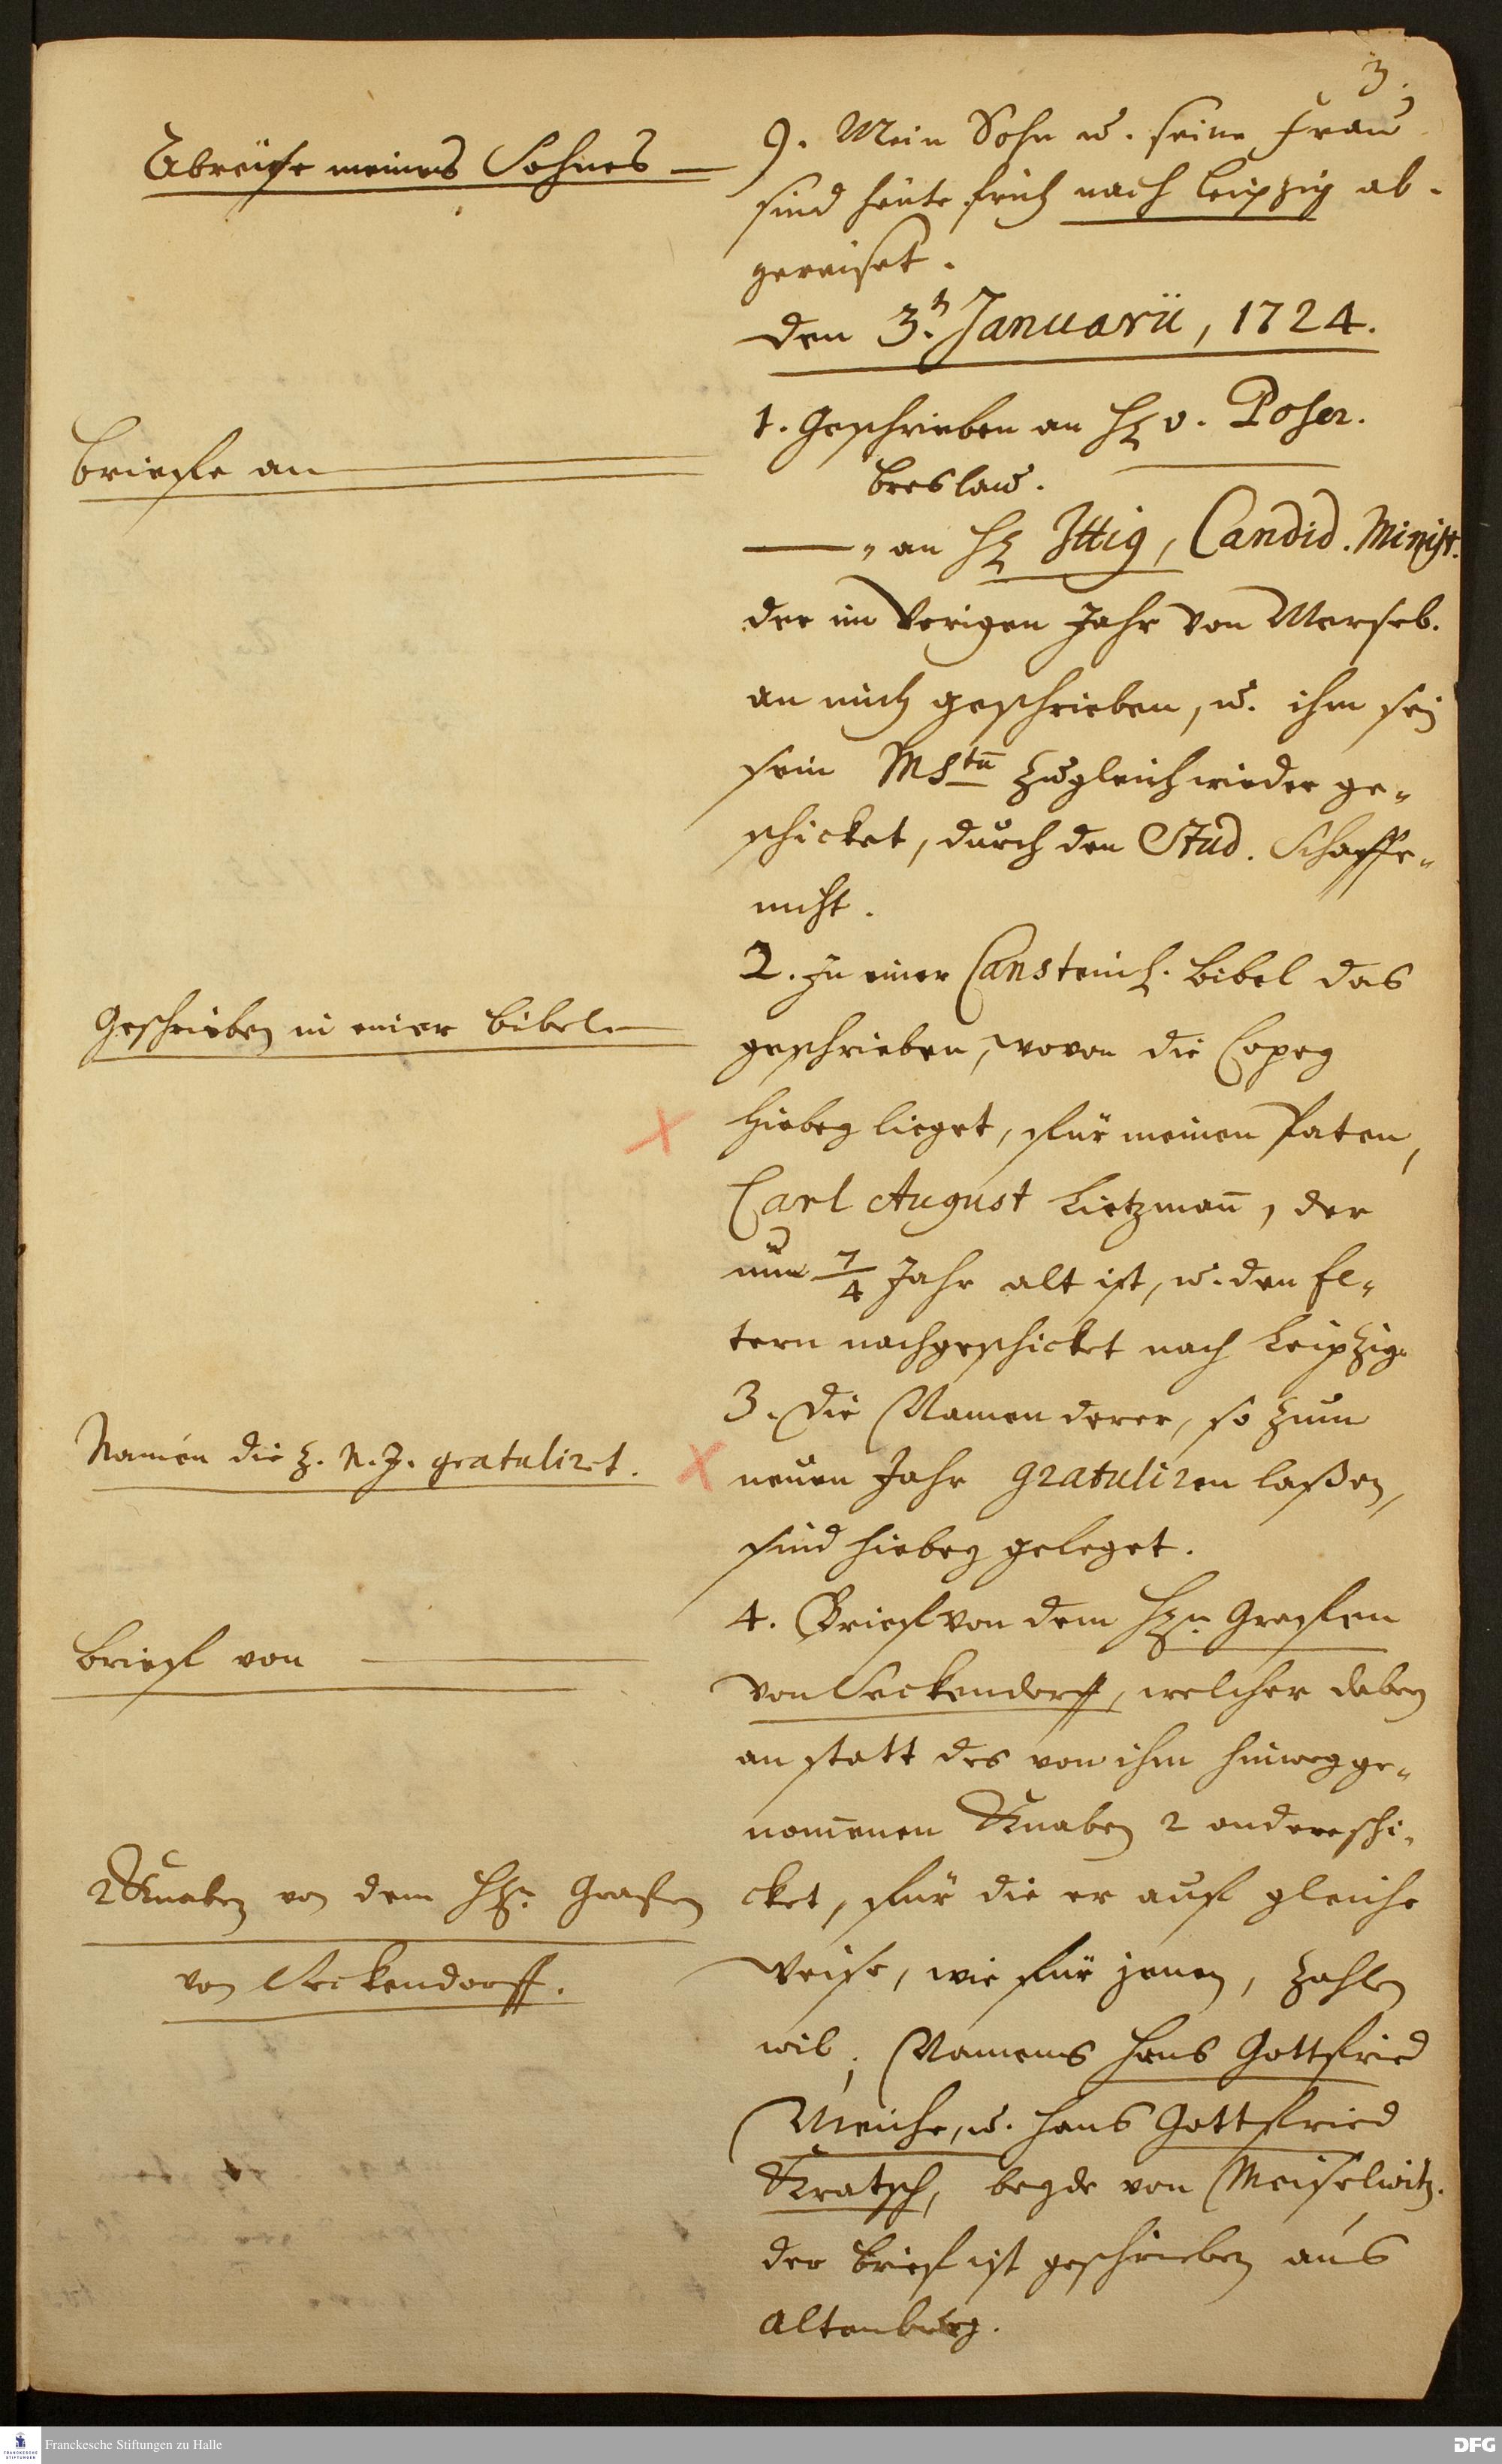 3.
Abreise meines Sohnes
9. Mein Sohn u. seine Frau
sind heute früh nach Leipzig ab-
gereiset.
den 3.t Januarii, 1724.
Brieffe an
1. Geschrieben an H. v. Poser.
Breslau.
" an H. Ittig, Candid. Minist.
der im Vorigen Jahr von Merseb.
an mich geschrieben, u. ihm sey
sein MStū zugleich wieder ge-
schicket, durch den Stud. Schaffe-
nicht.
Geschrieben in einer Bibel
2. In einer Cansteinsch. Bibel das
geschrieben, wovon die Copey
hiebey lieget, für meinen Paten,
Carl August Lietzman̄, der
nun 7/4 Jahr alt ist, u. den El-
tern nachgeschicket nach Leipzig.
Namen die z. N. J. gratulirt.
3. Die Namen derer, so zum
neuen Jahr gratuliren laßen,
sind hiebey geleget.
Brieff von
4. Brieff von dem Hrn Graffen
von Seckendorff, welcher dabey
an statt des von ihm hinweg ge-
nom̄enen Knaben 2 andere schi-
2 Knaben von dem Hrn. Grafen
cket, für die er auf gleiche
von Seckendorff.
Weise, wie für jenen, zahlen
wil; Namens Hans Gottfried
Meiche, u. Hans Gottfried
Kratsch, beyde von Meiselwitz.
der Brief ist geschrieben aus
Altenburg.
Franckesche Stiftungen zu Halle
DFG